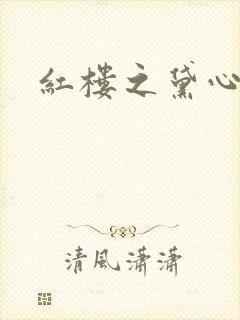 紅樓之黛心
清風瀟瀟